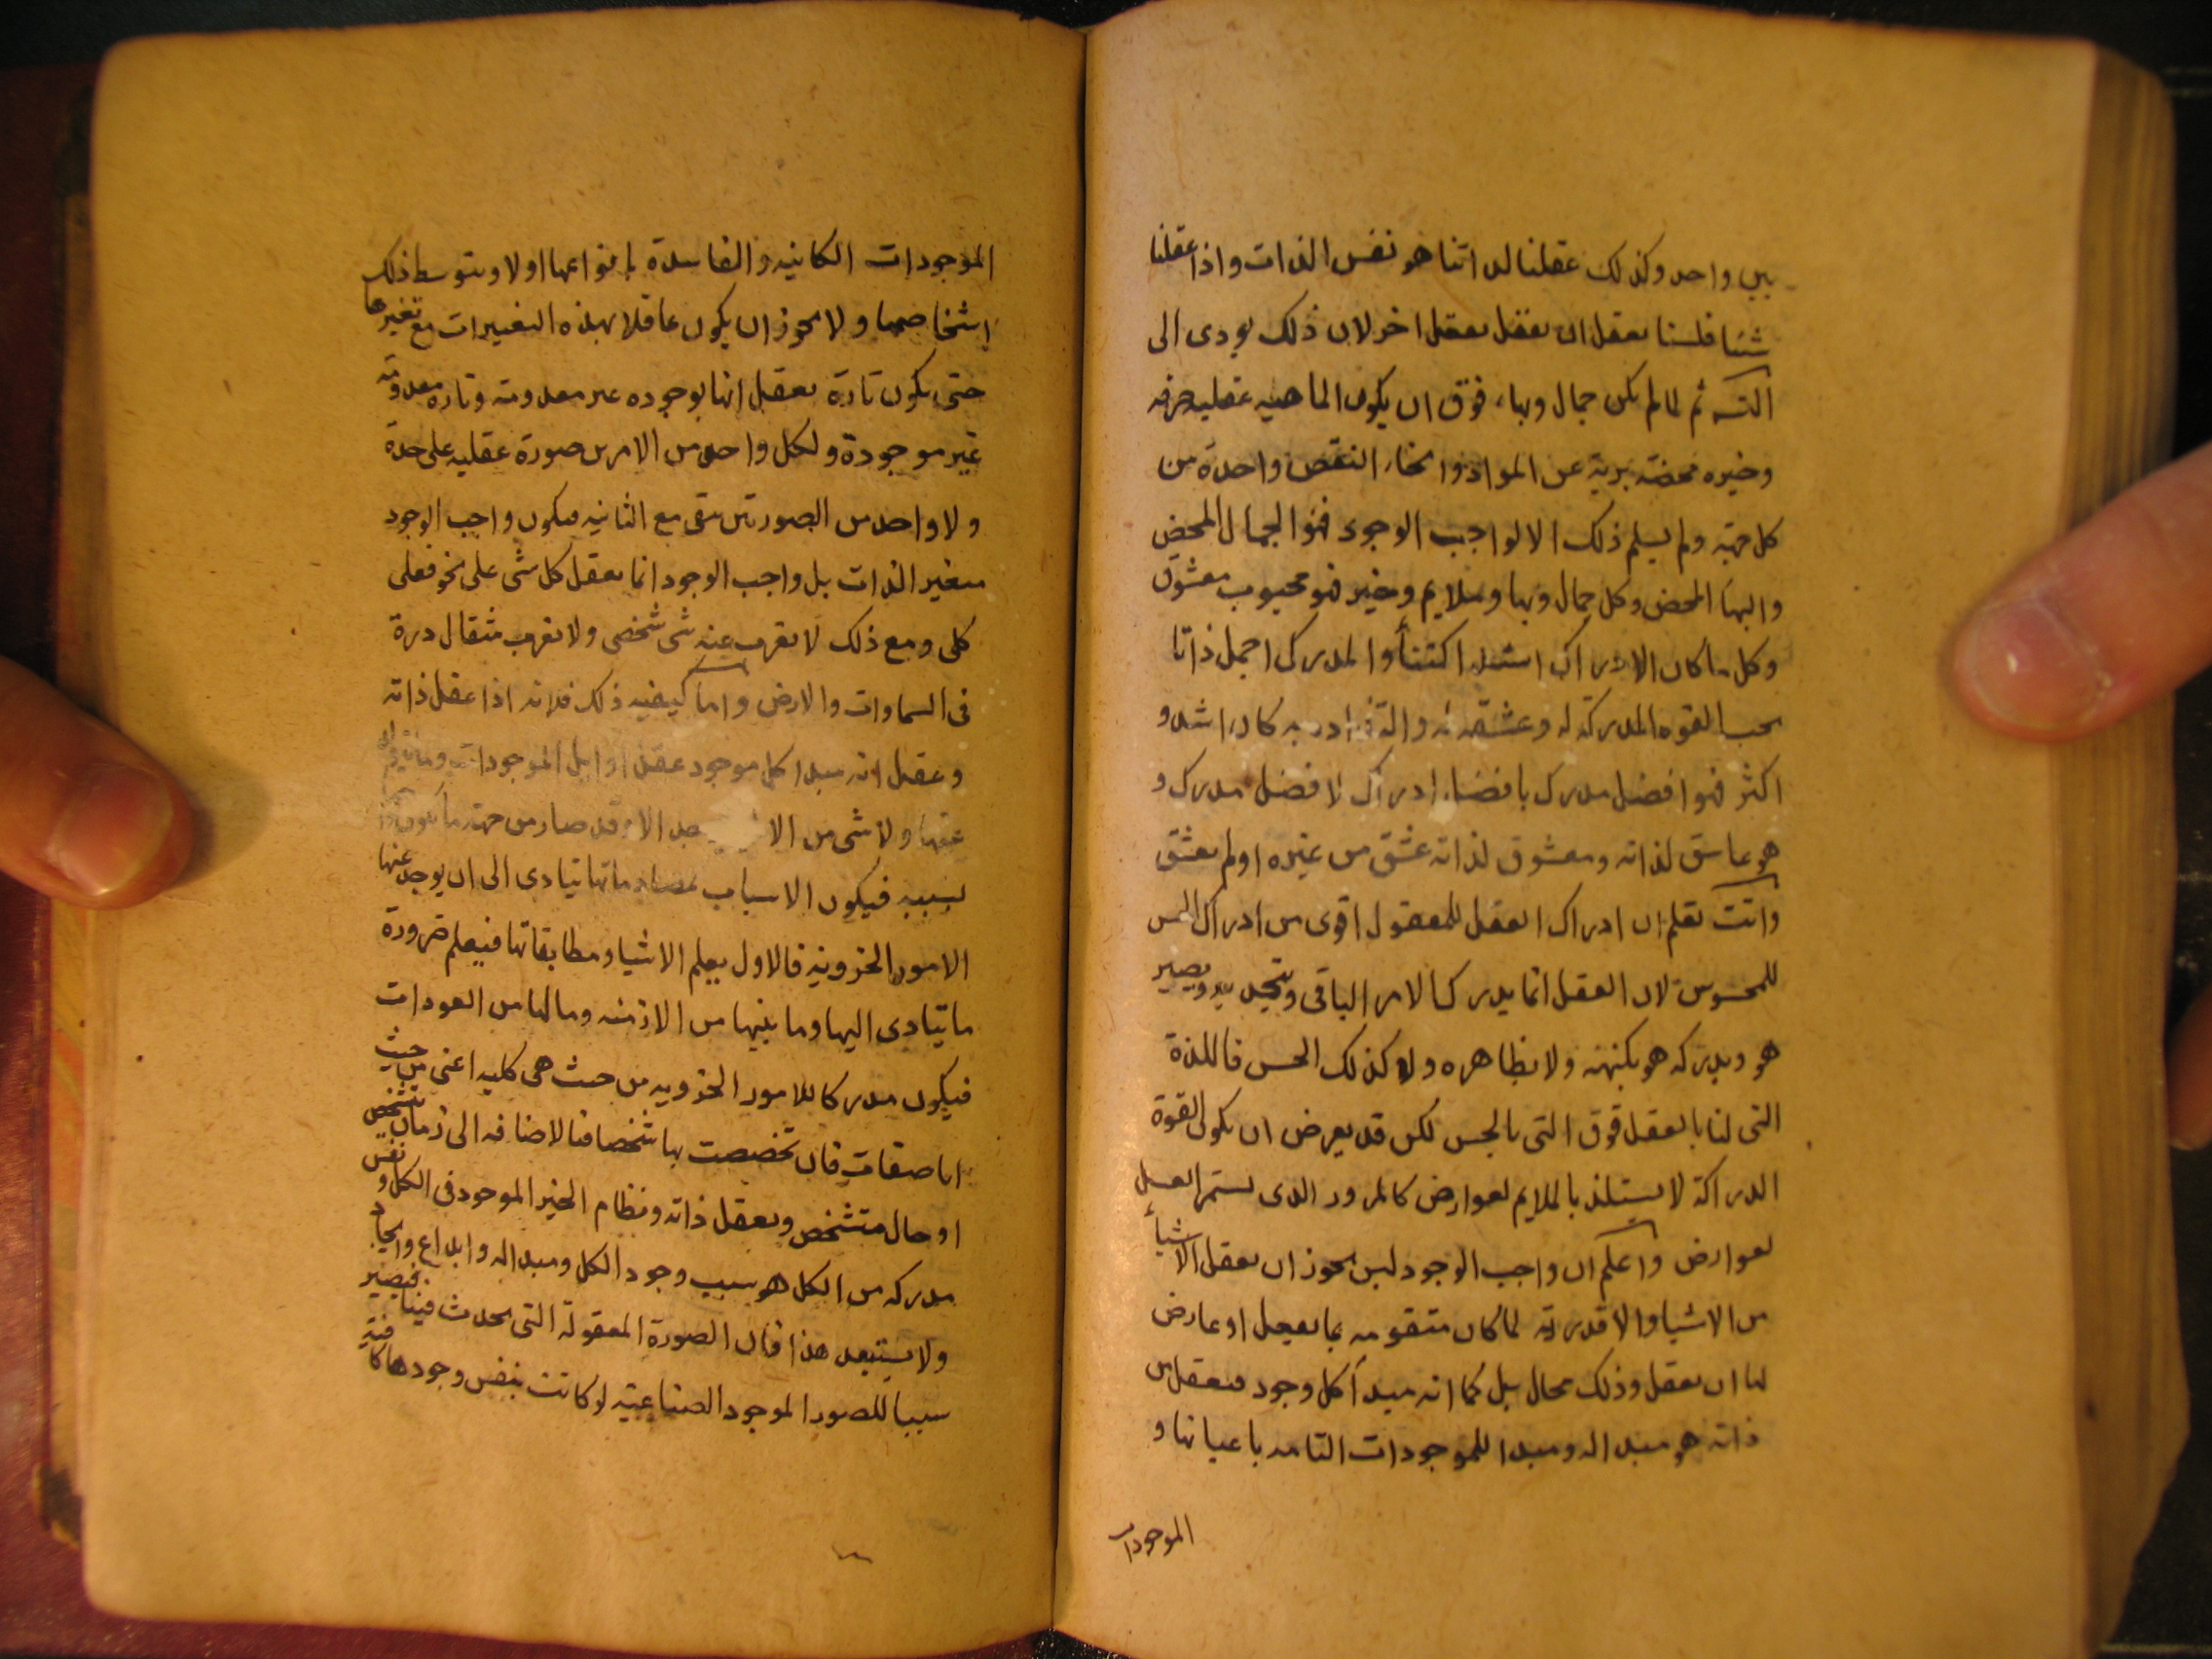 بين واحد وكذلك عقلنا لذاتنا هو نفس الذات واذا عقلنا
شيئا فلسنا نعقل ان نعقل بعقل اخر لان ذلك يودى الى
التسـ ثم لما لم يكن جمال وبهاء فوق ان يكون الماهيه عقليه صرفه
وخيره محضة بريۀ عن المواد وانحاء النقص واحدة من
كل جهة ولم يسلم ذلك الا لواجب الوجود فهو الجمال المحض
والبهاء المحض وكل جمال وبها وملايم وخير فهو محبوب معشوق
وكل ما كان الادراك اشد اكتناها والمدرك اجمل ذاتا
فحب القوه المدركة له وعشقه له والتذاذه به كان اشد و
اكثر فهو افضل مدرك بافضل ادراك لافضل مدرك و
هو عاشق لذاته ومعشوق لذاته عشق من غيره اولم يعشق
وانت تعلم ان ادراك العقل للمعقول اقوى من ادراك الحس
للمحسوس لان العقل انما يدرك الامر الباقى ويتحد به ويصير
هو ويدركه هو بكنهه ولا بظاهره ولا كذلك الحس فاللذة
التى لنا بالعقل فوق التى بالحس لكن قد يعرض ان يكون القوة
الدراكة لا يستلذ بالملايم لعوارض كالمرور الذى يستمر العسل
لعوارض واعلم ان واجب الوجود ليس يجوز ان يعقل الاشياء
من الاشيا والا فذاته لما كان متقومه بما يعقل او عارض
لها ان يعقل وذلك محال بل كما انه مبدأ كل وجود فيعقل من
ذاته هو مبدا له ومبدا للموجودات التامه باعيانها و
الموجودات
الموجودات الكاينه والفاسدة بانواعها اولا وبتوسط ذلك
اشخاصها ولا يجوز ان يكون عاقلا بهذه التغييرات مع تغيرها
حتى يكون تارة يعقل انها بوجوده غير معدومة وتارة معدومة
غير موجودة ولكل واحد من الامرين صورة عقليه على حدة
ولا واحد من الصورتين يبقى مع الثانيه فيكون واجب الوجود
متغير الذات بل واجب الوجود انما يعقل كل شى على نحو فعلى
كلى ومع ذلك لا يعزب عنه شى شخصى ولا يعزب مثقال ذرة
فى السماوات والارض واما كيفيه ذلك فلانه اذا عقل ذاته
وعقل انه مبدا كل موجود عقل اوايل الموجودات وما يتولد
عنها ولا شى من الا يوجد الا وقد صار من جهة ما يكون واجبا
بسببه فيكون الاسباب بمصادماتها يتادى الى ان يوجد عنها
الامور الجزويه فالاول يعلم الاشيا ومطابقاتها فيعلم ضرورة
ما يتادى اليها وما بينها من الازمنه وما لها من العودات
فيكون مدركا للامور الجزويه من حيث هى كليه اعنى من حيث
لها صفات فان تخصصت بها شخصا فبالاضافه الى زمان متشخص
او حال متشخص ويعقل ذاته ونظام الخير الموجود فى الكل ونفس
مدركه من الكل هو سبب وجود الكل ومبدا له وابداع وايجاد
ولا يستبعد هذا فان الصورة المعقولة التى يحدث فينا فيصير
سببا للصور الموجود الصناعية لو كانت بنفس وجودها كافية